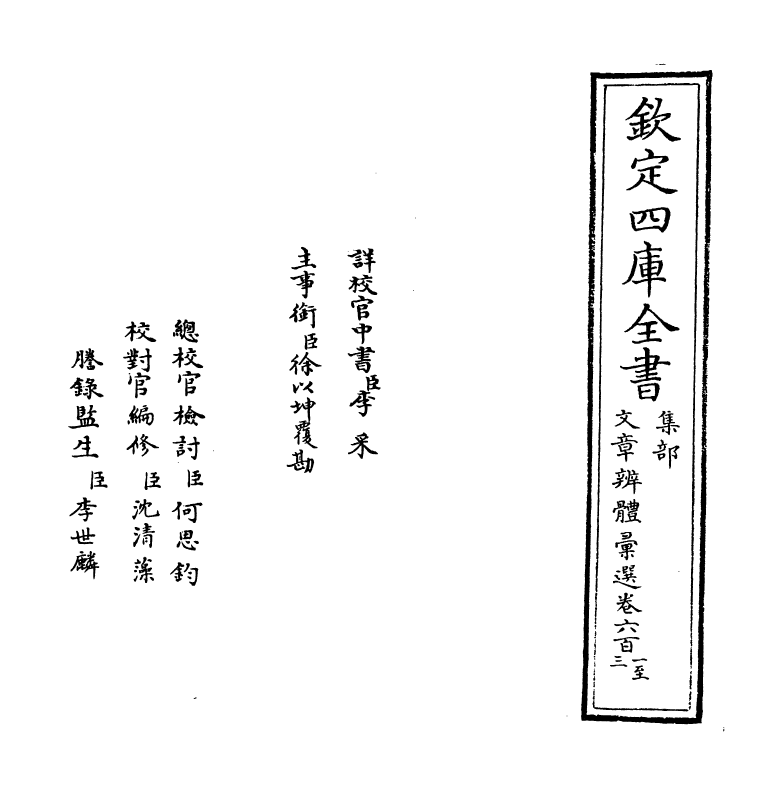 欽定四庫全書
集部
文章辨體彙選卷六百一至三
詳校官中書臣李采
主事銜臣徐以坤覆勘
總校官檢討臣何思鈞
校對官編修臣沈清藻
謄錄監生臣李世麟